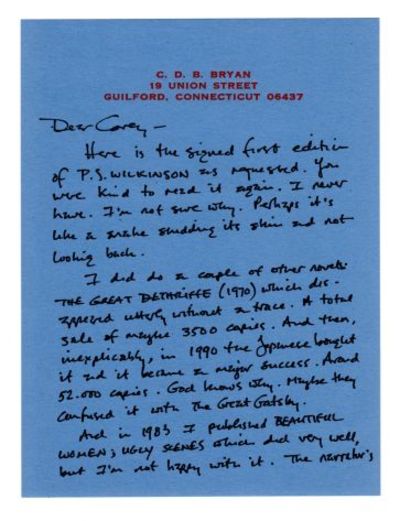 C. D. B. BRYAN
19 UNION STREET
GUILFORD, CONNECTICUT 06437
Dear Corey —
Here is the signed first edition
of P.S. WILKINSON as requested. You
were kind to read it again. I never
have. I'm not sure why. Perhaps it's
like a snake shedding its skin and not
looking back.
I did do a couple of other novels.
THE GREAT DETHRIFFE (1970) which dis-
appeared utterly without a trace. A total
sale of maybe 3500 copies. And then,
inexplicably, in 1990 the Japanese bought
it and it became a major success. Around
52.000 copies. God knows why. Maybe they
confused it with The Great Gatsby.
And in 1983 I published BEAUTIFUL
WOMEN; UGLY SCENES which did very well,
but I'm not happy with it. The narrator's